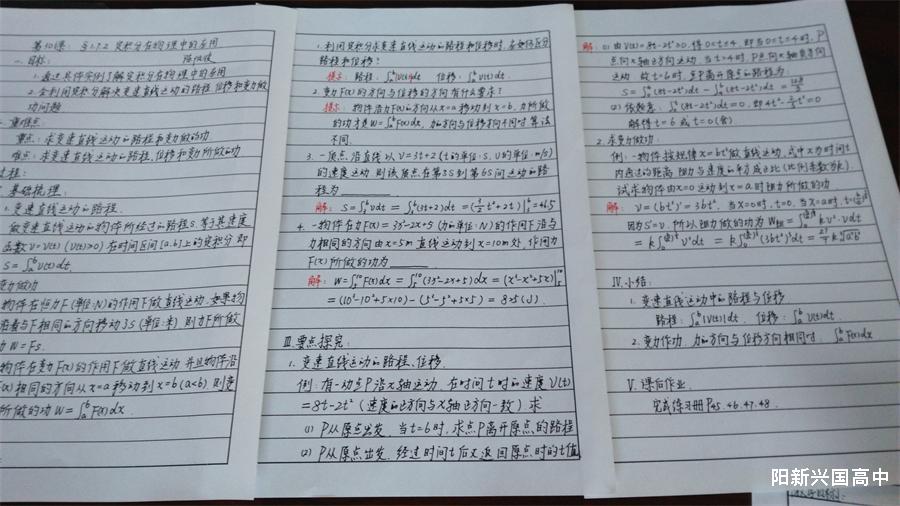 第10课: §1.7.2 定积分在物理中的应用
一. 目标:
1. 通过具体实例了解定积分在物理中的应用
2. 会利用定积分解决变速直线运动的路程、位移和变力做
功问题
重难点:
重点: 求变速直线运动的路程和变力做的功
难点: 求变速直线运动的路程、位移和变力所做的功
过程:
基础梳理:
1. 变速直线运动的路程.
做变速直线运动的物体所经过的路程s,等于其速度
函数v=v(t) (v(t)≥0) 在时间区间[a.b]上的定积分,即
S=∫ₐᵇv(t)dt.
变力做功
物体在恒力F(单位:N)的作用下做直线运动,如果物
沿着与F相同的方向移动了S(单位:米) 则力F所做
功W=Fs.
物体在变力F(x)的作用下做直线运动,并且物体沿
F(x)相同的方向从x=a移动到x=b(a<b),则变
所做的功W=∫ₐᵇF(x)dx.
1. 利用定积分求变速直线运动的路程和位移时,应如何区分
路程和位移?
提示: 路程: ∫ₐᵇ|v(t)|dt 位移: ∫ₐᵇv(t)dt.
2. 变力F(x)的方向与位移的方向有什么要求?
提示: 物体沿力F(x)的方向从x=a移动到x=b,力所做
的功才是W=∫ₐᵇF(x)dx. 力的方向与位移方向不同时算法
不同.
3. 一质点沿直线以v=3t+2(t的单位:s, v的单位:m/s)
的速度运动,则该质点在第3s到第6s间运动的路
程为
解: S=∫₃⁶vdt=∫₃⁶(3t+2)dt=(3/2t²+2t)|₃⁶=46.5
4. 一物体在力F(x)=3x²-2x+5(力的单位:N)的作用下沿与
力相同的方向由x=5m直线运动到x=10m处,作用力
F(x)所做的功为
解: W=∫₅¹⁰F(x)dx=∫₅¹⁰(3x²-2x+5)dx=(x³-x²+5x)|₅¹⁰
=(10³-10²+5×10)-(5³-5²+5×5)=825(J).
Ⅲ. 要点探究:
1. 变速直线运动的路程、位移.
例: 有一动点P沿x轴运动,在时间t时的速度v(t)
=8t-2t² (速度的正方向与x轴正方向一致) 求
(1) P从原点出发,当t=6时,求点P离开原点的路程
(2) P从原点出发,经过时间t后又返回原点时的t值
解: (1) 由v(t)=8t-2t²≥0,得0≤t≤4,即当0≤t≤4时,P
点向x轴正方向运动,当t>4时,P点向x轴负方向
运动,故t=6时,点P离开原点的路程为
S=∫₀⁴(8t-2t²)dt-∫₄⁶(8t-2t²)dt=128/3
(2) 依题意: ∫₀ᵗ(8t-2t²)dt=0,即4t²-2/3t³=0
解得t=6或t=0(舍).
2. 求变力做功:
例: 一物体按规律x=bt³做直线运动,式中x为时间t
内通过的距离,阻力与速度的平方成正比(比例系数为k).
试求物体由x=0运动到x=a时阻力所做的功
Ⅳ. 小结:
1. 变速直线运动中的路程与位移
路程: ∫ₐᵇ|v(t)|dt, 位移: ∫ₐᵇv(t)dt.
2. 变力作功, 力的方向与位移方向相同时, ∫ₐᵇF(x)dx
Ⅴ. 课后作业.
完成练习册P45.46.47.48.
阳新兴国高中